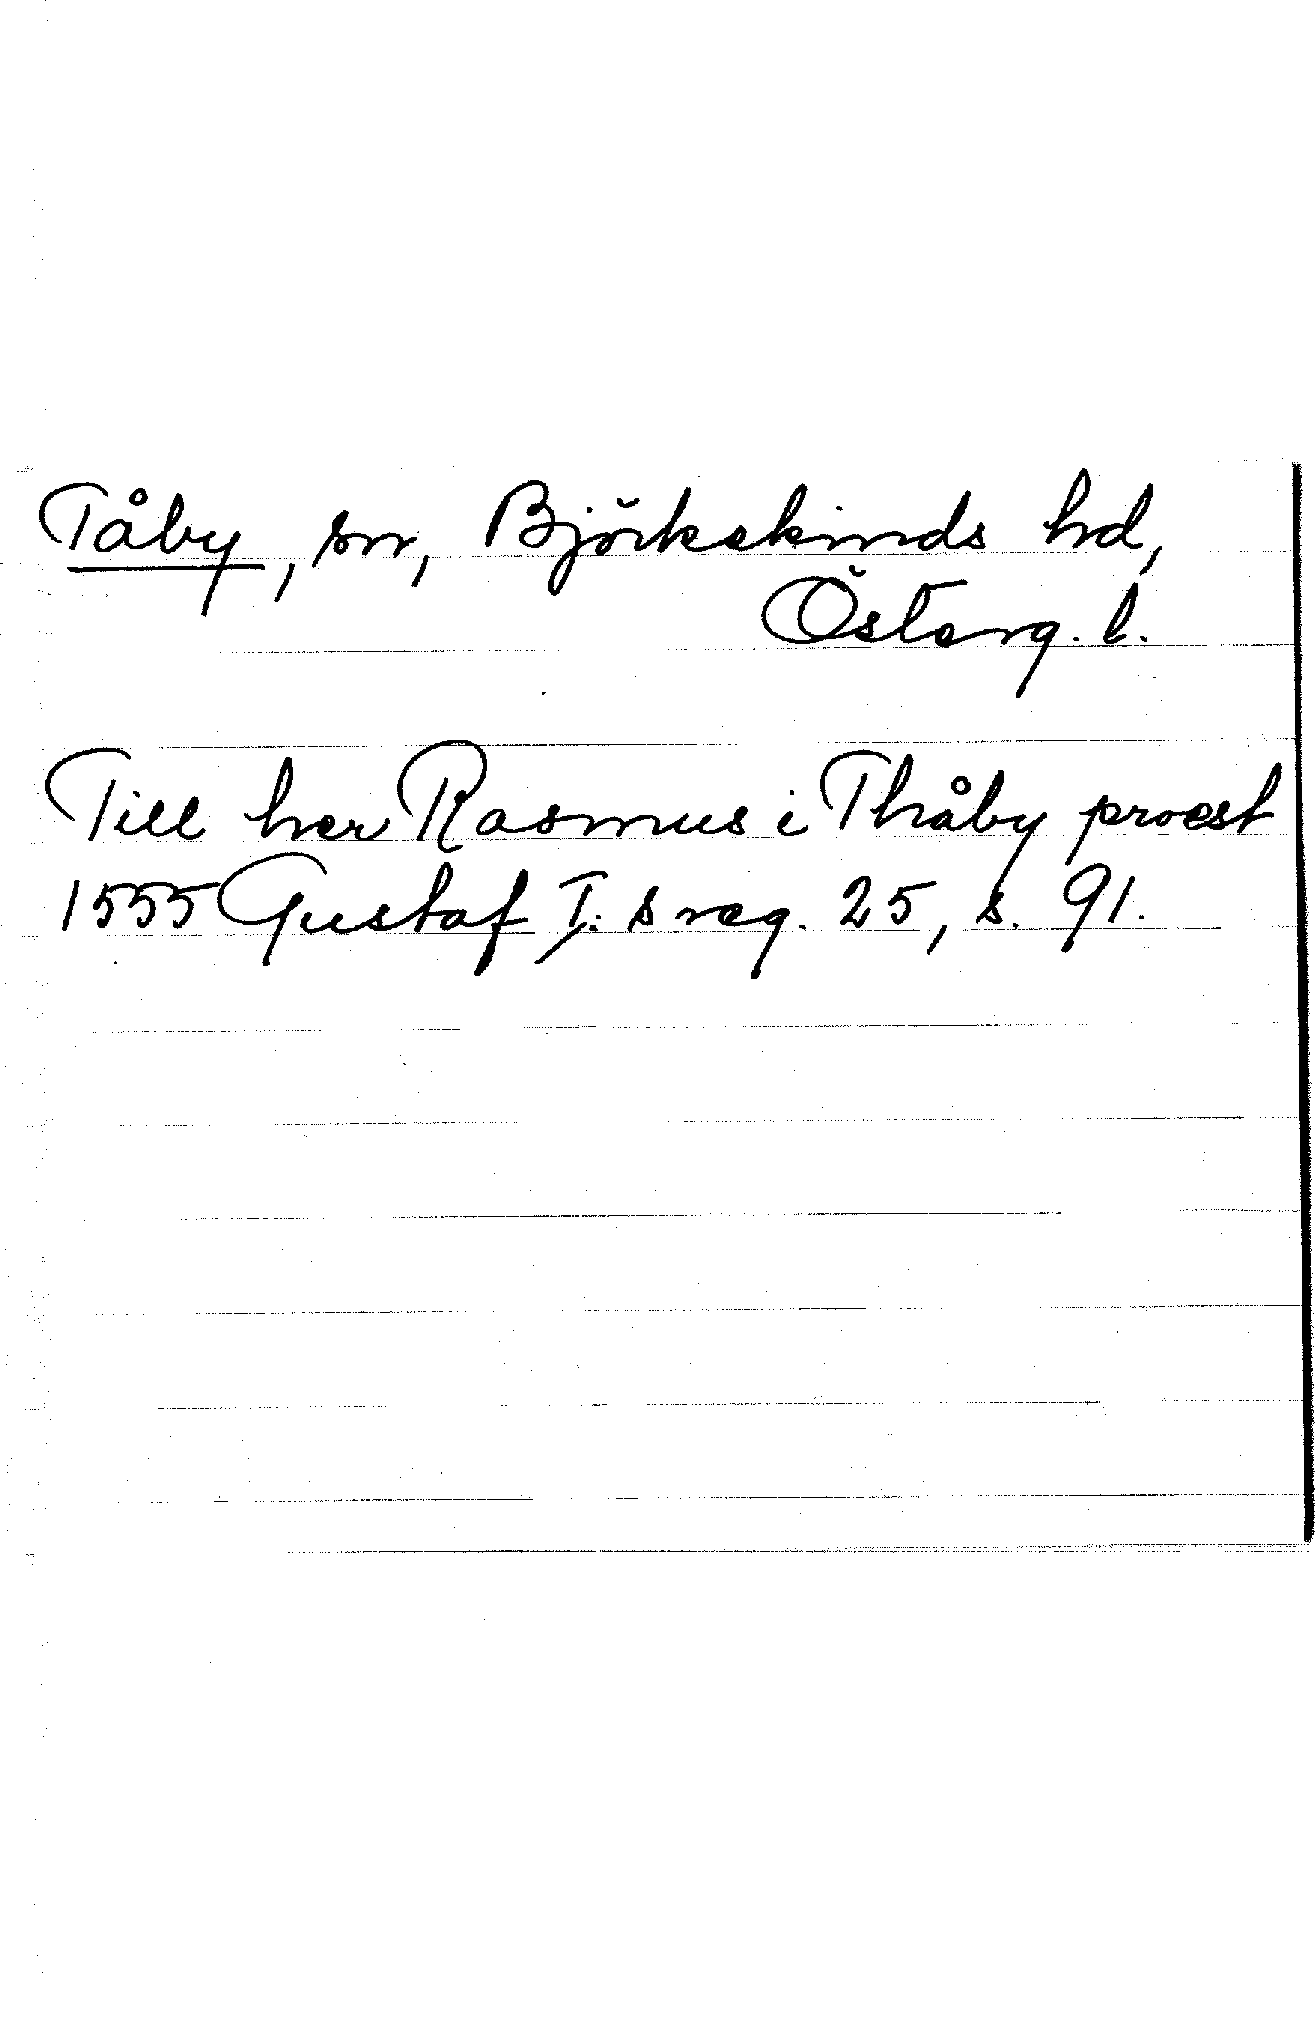 Tåby, sn, Björkekinds hd,
Österg. l.
Till her Rasmus i Thåby proest
1555 Gustaf I:s reg. 25, s. 91.